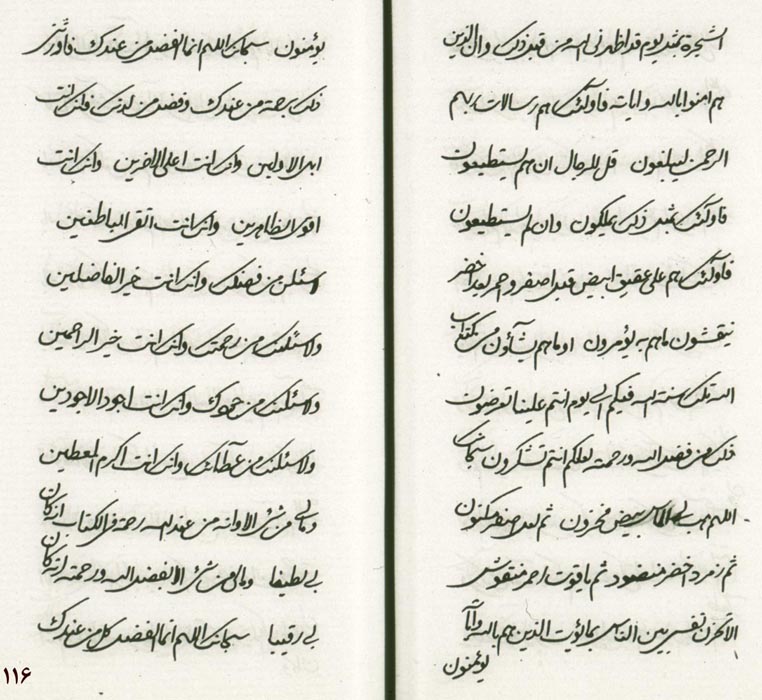 الشجرة بعد يوم قد اظهرنی الله من قبل ذلک وان الذین
هم امنوا بالله و ایاته فاولئک هم رسالات ربهم
الرحمن لیبلغون قل للرجال ان هم لیستطیعون
فاولئک بمثل ذلک یملکون وان لم یستطیعون
فاولئک هم علی عقیق ابیض قبل اصفر و احمر بعد اخضر
ینقشون ما هم به یؤمرون او ما هم یشآؤن من کتاب
الله تلک سنة الله فیکم الی یوم انتم علینا تعرضون
ذلک من فضل الله و رحمته لعلکم انتم تشکرون سبحانک
اللهم هب لی الماس بیض مخزون ثم لعل اصفر مکنون
ثم زمرد اخضر منضود ثم یاقوت احمر منقوش
الا تحزن نفسی بین الناس بما یؤیت الذین هم بالله و آیاته
یؤمنون
یؤمنون سبحانک اللهم انما الفضل من عندک فاورثنی
ذلک برحمة من عندک و فضل من لدنک وانک انت
ابدع الاولین وانک انت اعلی الاخرین وانک انت
اقوی الظاهرین وانک انت اتقن الباطنین
لاسئلن من فضلک وانک انت خیر الفاضلین
ولاسئلنک من رحمتک وانک انت خیر الراحمین
ولاسئلنک من جودک وانک انت اجود الاجودین
ولاسئلنک من عطآئک وانک انت اکرم المعطین
و مالی من شئ الا وانه من عند الله رحمة فی الکتاب انه کان
بی لطیفا و مالی من شئ الا بفضل الله و رحمته انه کان
بی رقیبا سبحانک اللهم انما الفضل کل من عندک
۱۱۶